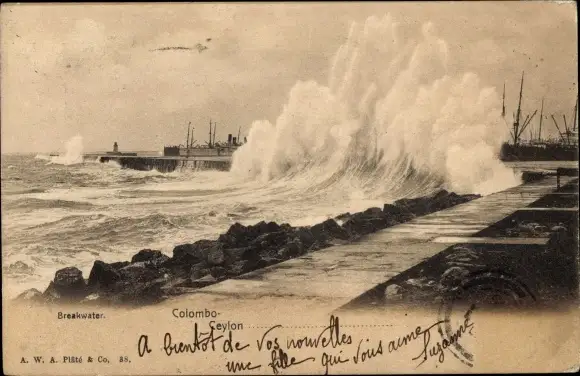 Breakwater.
Colombo-
Ceylon
A. W. A. Plâté & Co, 38.
A bientôt de vos nouvelles
une fille qui vous aime
Suzanne